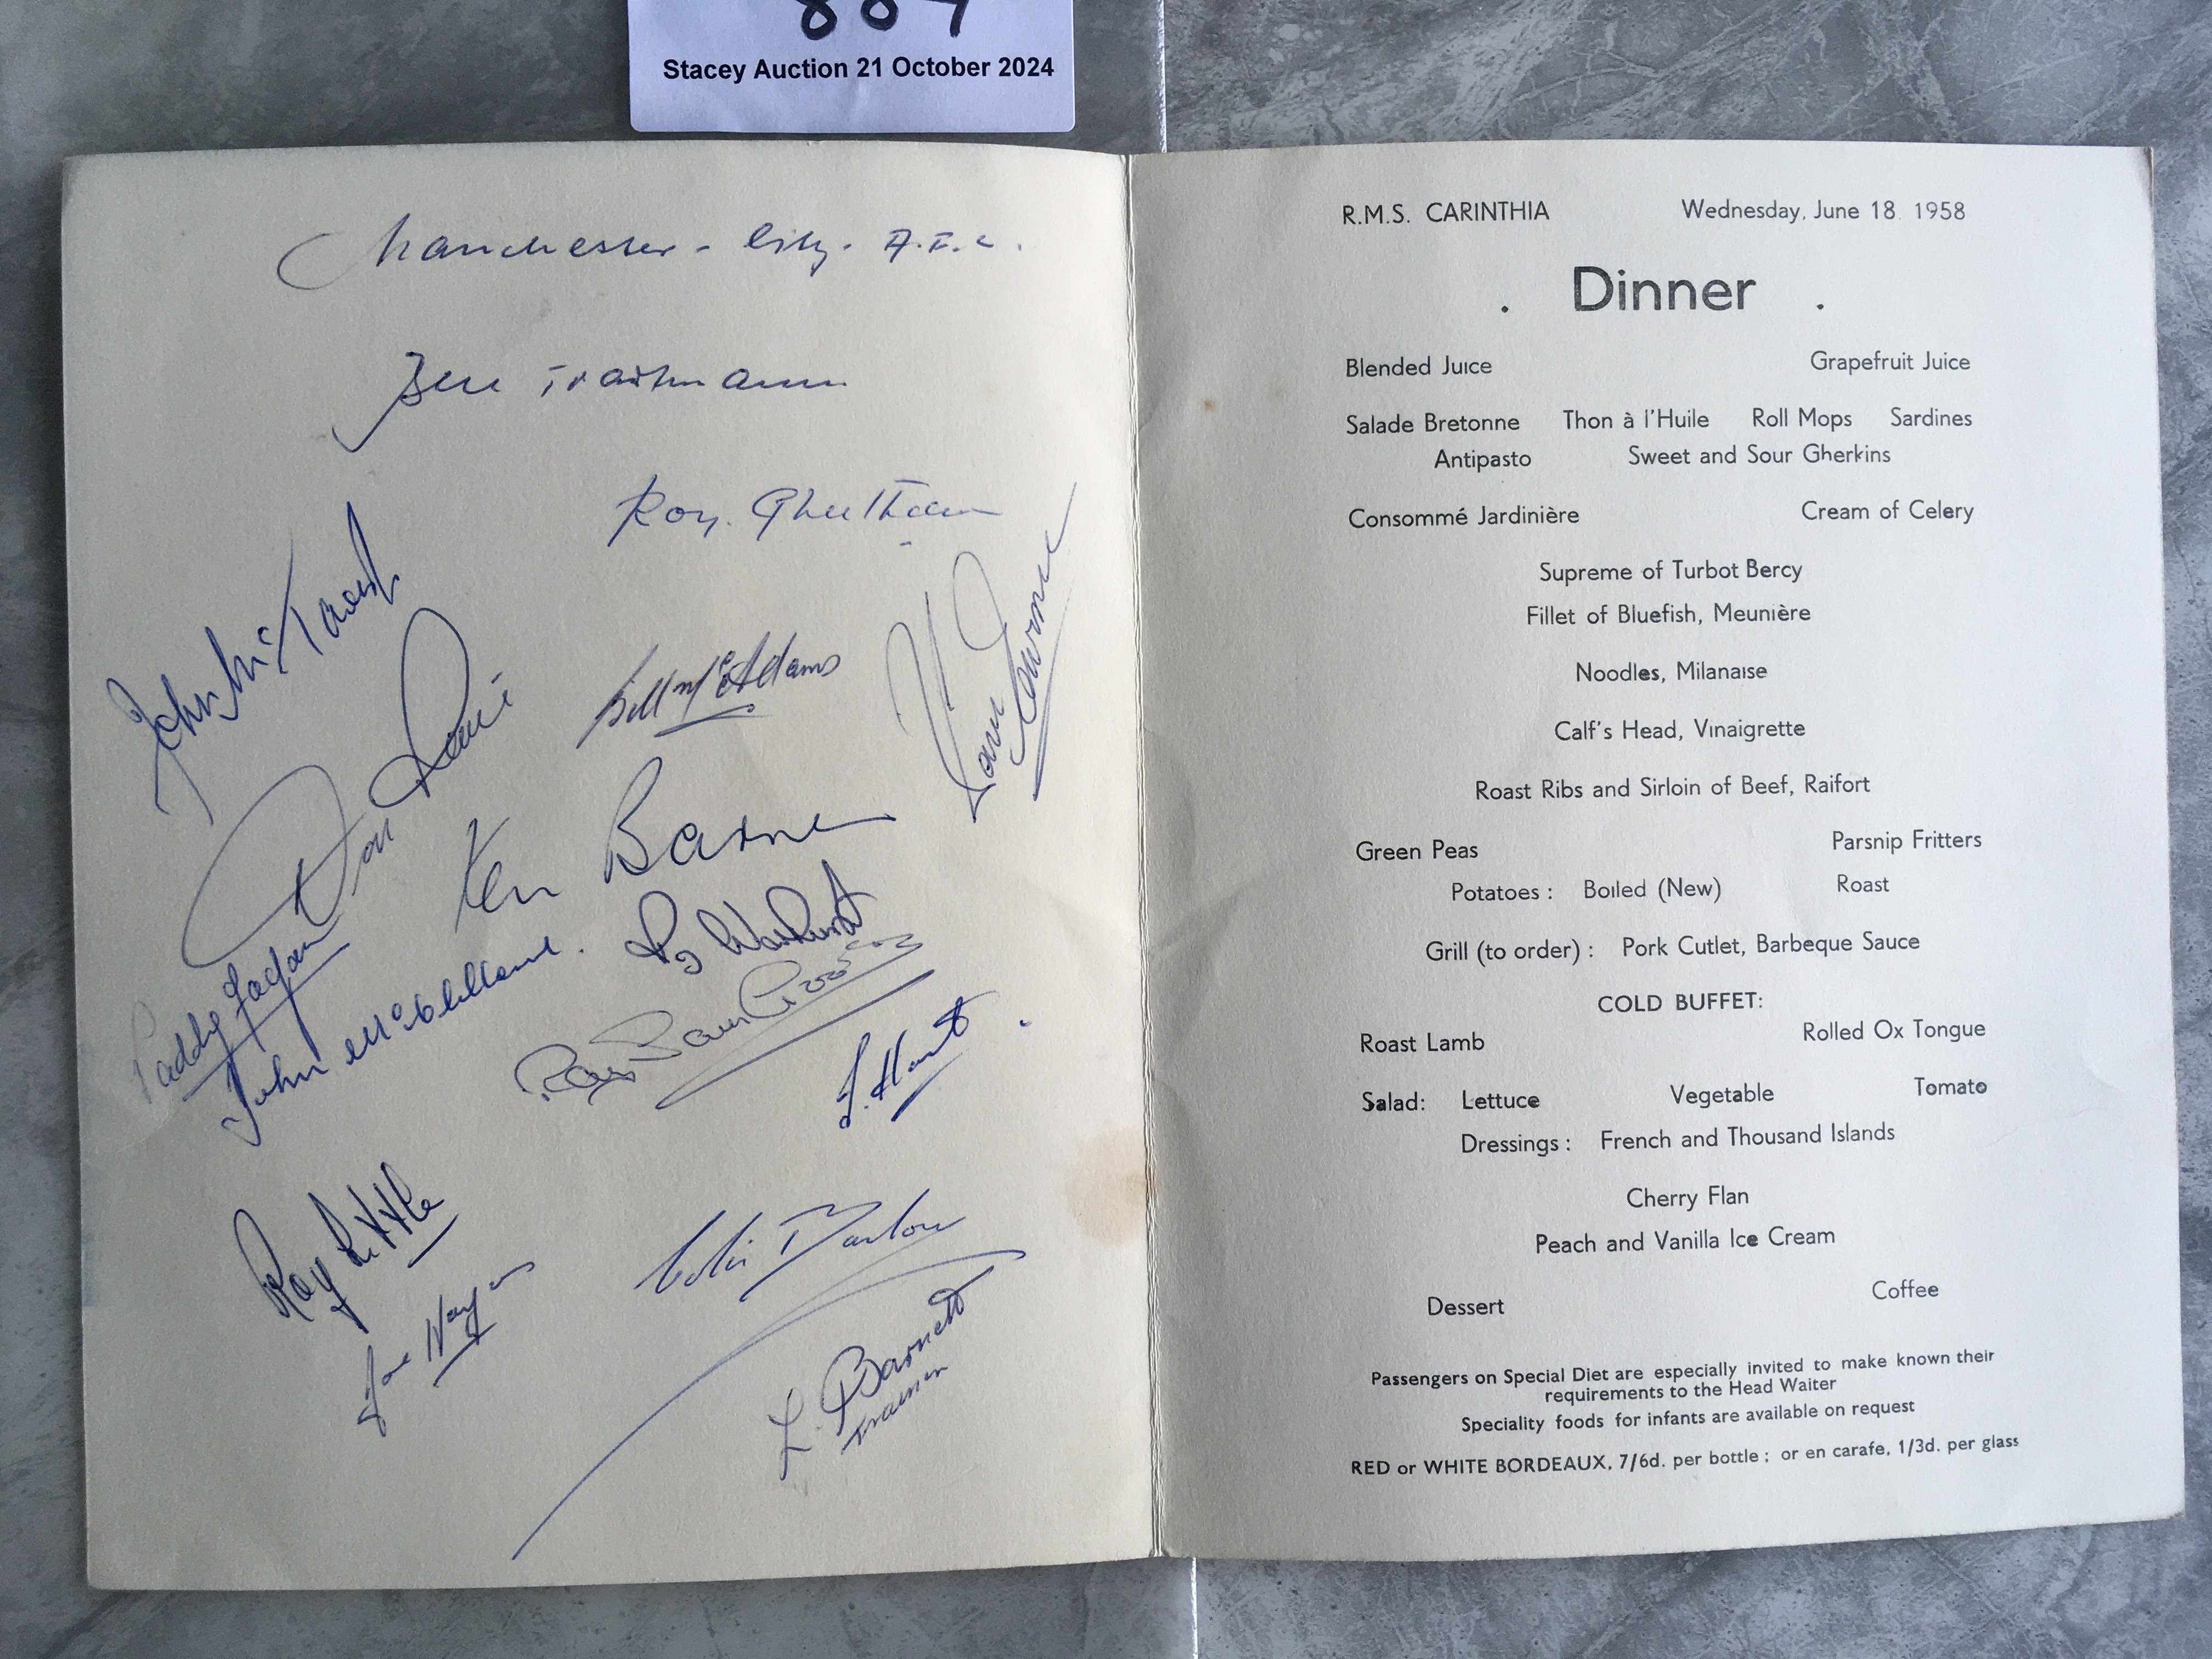 Stacey Auction 21 October 2024
Manchester - City. A.F.C.
Bert Trautmann
Roy. Cheetham
John McTavish
Bill McAdams
Dave Ewing
Don Revie
Ken Barnes
Paddy Fagan
John McClelland.
Roy Warhurst
J. Hart
Roy Little
Joe Hayes
Colin Barlow
L. Barnett
Trainer
R.M.S. CARINTHIA Wednesday, June 18. 1958
. Dinner .
Blended Juice Grapefruit Juice
Salade Bretonne Thon à l'Huile Roll Mops Sardines
Antipasto Sweet and Sour Gherkins
Consommé Jardinière Cream of Celery
Supreme of Turbot Bercy
Fillet of Bluefish, Meunière
Noodles, Milanaise
Calf's Head, Vinaigrette
Roast Ribs and Sirloin of Beef, Raifort
Green Peas Parsnip Fritters
Potatoes : Boiled (New) Roast
Grill (to order) : Pork Cutlet, Barbeque Sauce
COLD BUFFET:
Roast Lamb Rolled Ox Tongue
Salad: Lettuce Vegetable Tomato
Dressings : French and Thousand Islands
Cherry Flan
Peach and Vanilla Ice Cream
Dessert Coffee
Passengers on Special Diet are especially invited to make known their
requirements to the Head Waiter
Speciality foods for infants are available on request
RED or WHITE BORDEAUX, 7/6d. per bottle ; or en carafe, 1/3d. per glass